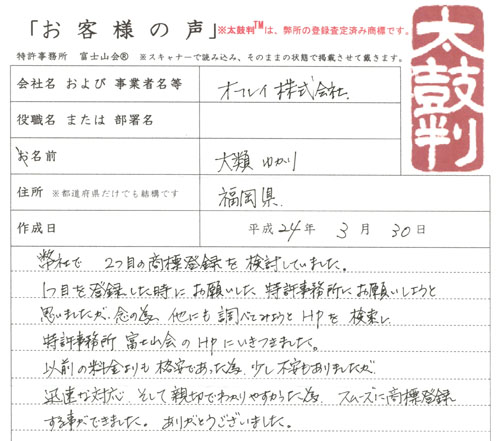 「お客様の声」※太鼓判™は、弊所の登録査定済み商標です。
特許事務所 富士山会® ※スキャナーで読み込み、そのままの状態で掲載させて戴きます。
太鼓判
会社名 および 事業者名等 オフレイ株式会社.
役職名 または 部署名
お名前 大類 ゆかり
住所 ※都道府県だけでも結構です 福岡県.
作成日 平成 24 年 3 月 30 日
弊社で 2つ目の商標登録を検討していました。
1つ目を登録した時にお願いした特許事務所にお願いしようと
思いましたが、念の為、他にも調べてみようとHPを検索し
特許事務所 富士山会のHPにいきつきました。
以前の料金よりも格安であった為、少し不安もありましたが
迅速な対応 そして親切でわかりやすかった為、スムーズに商標登録
する事ができました。ありがとうございました。